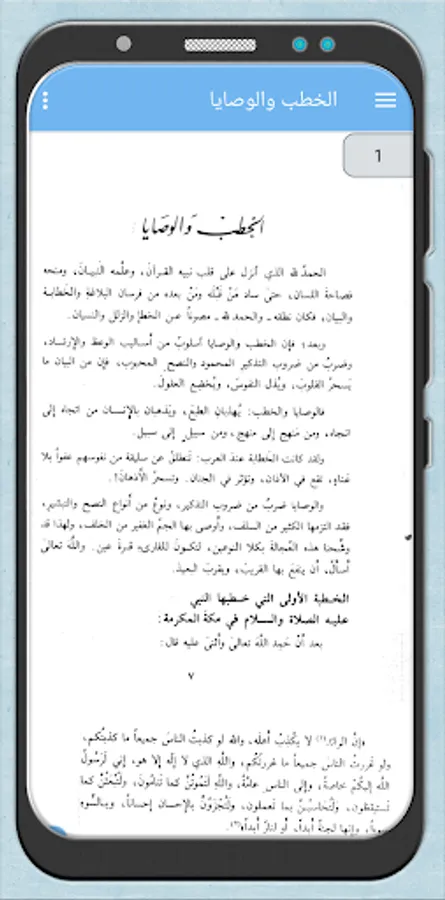 الخطب والوصايا
1
الخطب والوصايا
الحمدُ لله الذي أنزل على قلب نبيه القرآنَ، وعلّمه التبيانَ، ومنحه
فصاحةَ اللسان، حتى ساد مَنْ قَبْلَه ومَنْ بعده من فرسان البلاغةِ والخطابة
والبيان، فكان نطقه ـ والحمد لله ـ مصوناً عن الخطأ والزلل والنسيان.
وبعد؛ فإن الخطب والوصايا أسلوبٌ من أساليب الوعظ والإرشاد،
وضربٌ من ضروب التذكير المحمود والنصح المحبوب، فإن من البيان ما
يَسحرُ القلوبَ، ويُذل النفوسَ، ويُخضِع العقولَ.
فالوصايا والخطب: يُهذبانِ الطبعَ، ويَذهبانِ بالإنسان من اتجاه إلى
اتجاه، ومن مَنهج إلى منهج، ومن سبيل إلى سبيل.
ولقد كانت الخَطابة عندَ العرب: تَنطلقُ عن سليقة من نفوسهم عفواً بلا
عَناءٍ، تقع في الآذان، وتؤثر في الجنان. وتسحرُ الأذهانَ!.
والوصايا ضربٌ من ضروب التذكير، ونوعٌ من أنواع النصح والتبشير،
فقد التزمها الكثير من السلف، وأوصى بها الجمّ الغفير من الخلف، ولهذا قد
هذه العُجالة بكلا النوعين، لتكونَ للقارىء قرةَ عين. واللَّهَ تعالىٰ
أسألُ، أن ينفعَ بها القريبَ، ويقرب البعيدَ.
الخطبة الأولى التي خطبها النبي
عليه الصلاة والسلام في مكة المكرمة:
بعد أنْ حَمِد اللَّهَ تعالىٰ وأثنىٰ عليه قال:
٧
«إنّ الرائدَ لا يَكذبُ أهلَه، والله لو كذبتُ الناسَ جميعاً ما كذبتُكم،
ولو غررتُ الناسَ جميعاً ما غررتُكم، واللَّهِ الذي لا إلٰهَ إلا هو، إني لَرَسُولُ
اللَّه إليكم خاصةً، وإلى الناس عامَّةً، واللَّهِ لتَموتُنَّ كما تَنامُونَ، ولَتُبعَثُنَّ كما
تَستيقظون، ولَتُحَاسَبُنَّ بما تَعملون، ولَتُجزَوُنَّ بالإحسان إحساناً، وبالسُّوءِ
سُوءاً، وإنها لجنةٌ أبداً، أو لنارٌ أبداً»